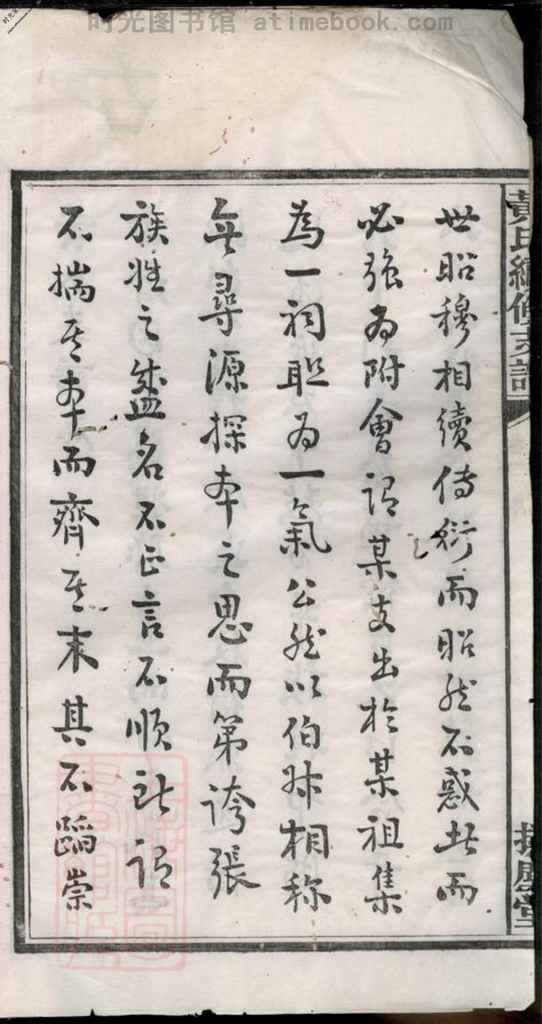 时光图书馆 atimebook.com
黃氏續修支譜
世昭穆相續傳衍而昭然不惑此而
必強為附會謂某支出於某祖集
為一祠聯為一氣公然以伯叔相称
無尋源探本之思而第誇張
族姓之盛名不正言不順所謂
不揣其本而齊其末其不蹈崇